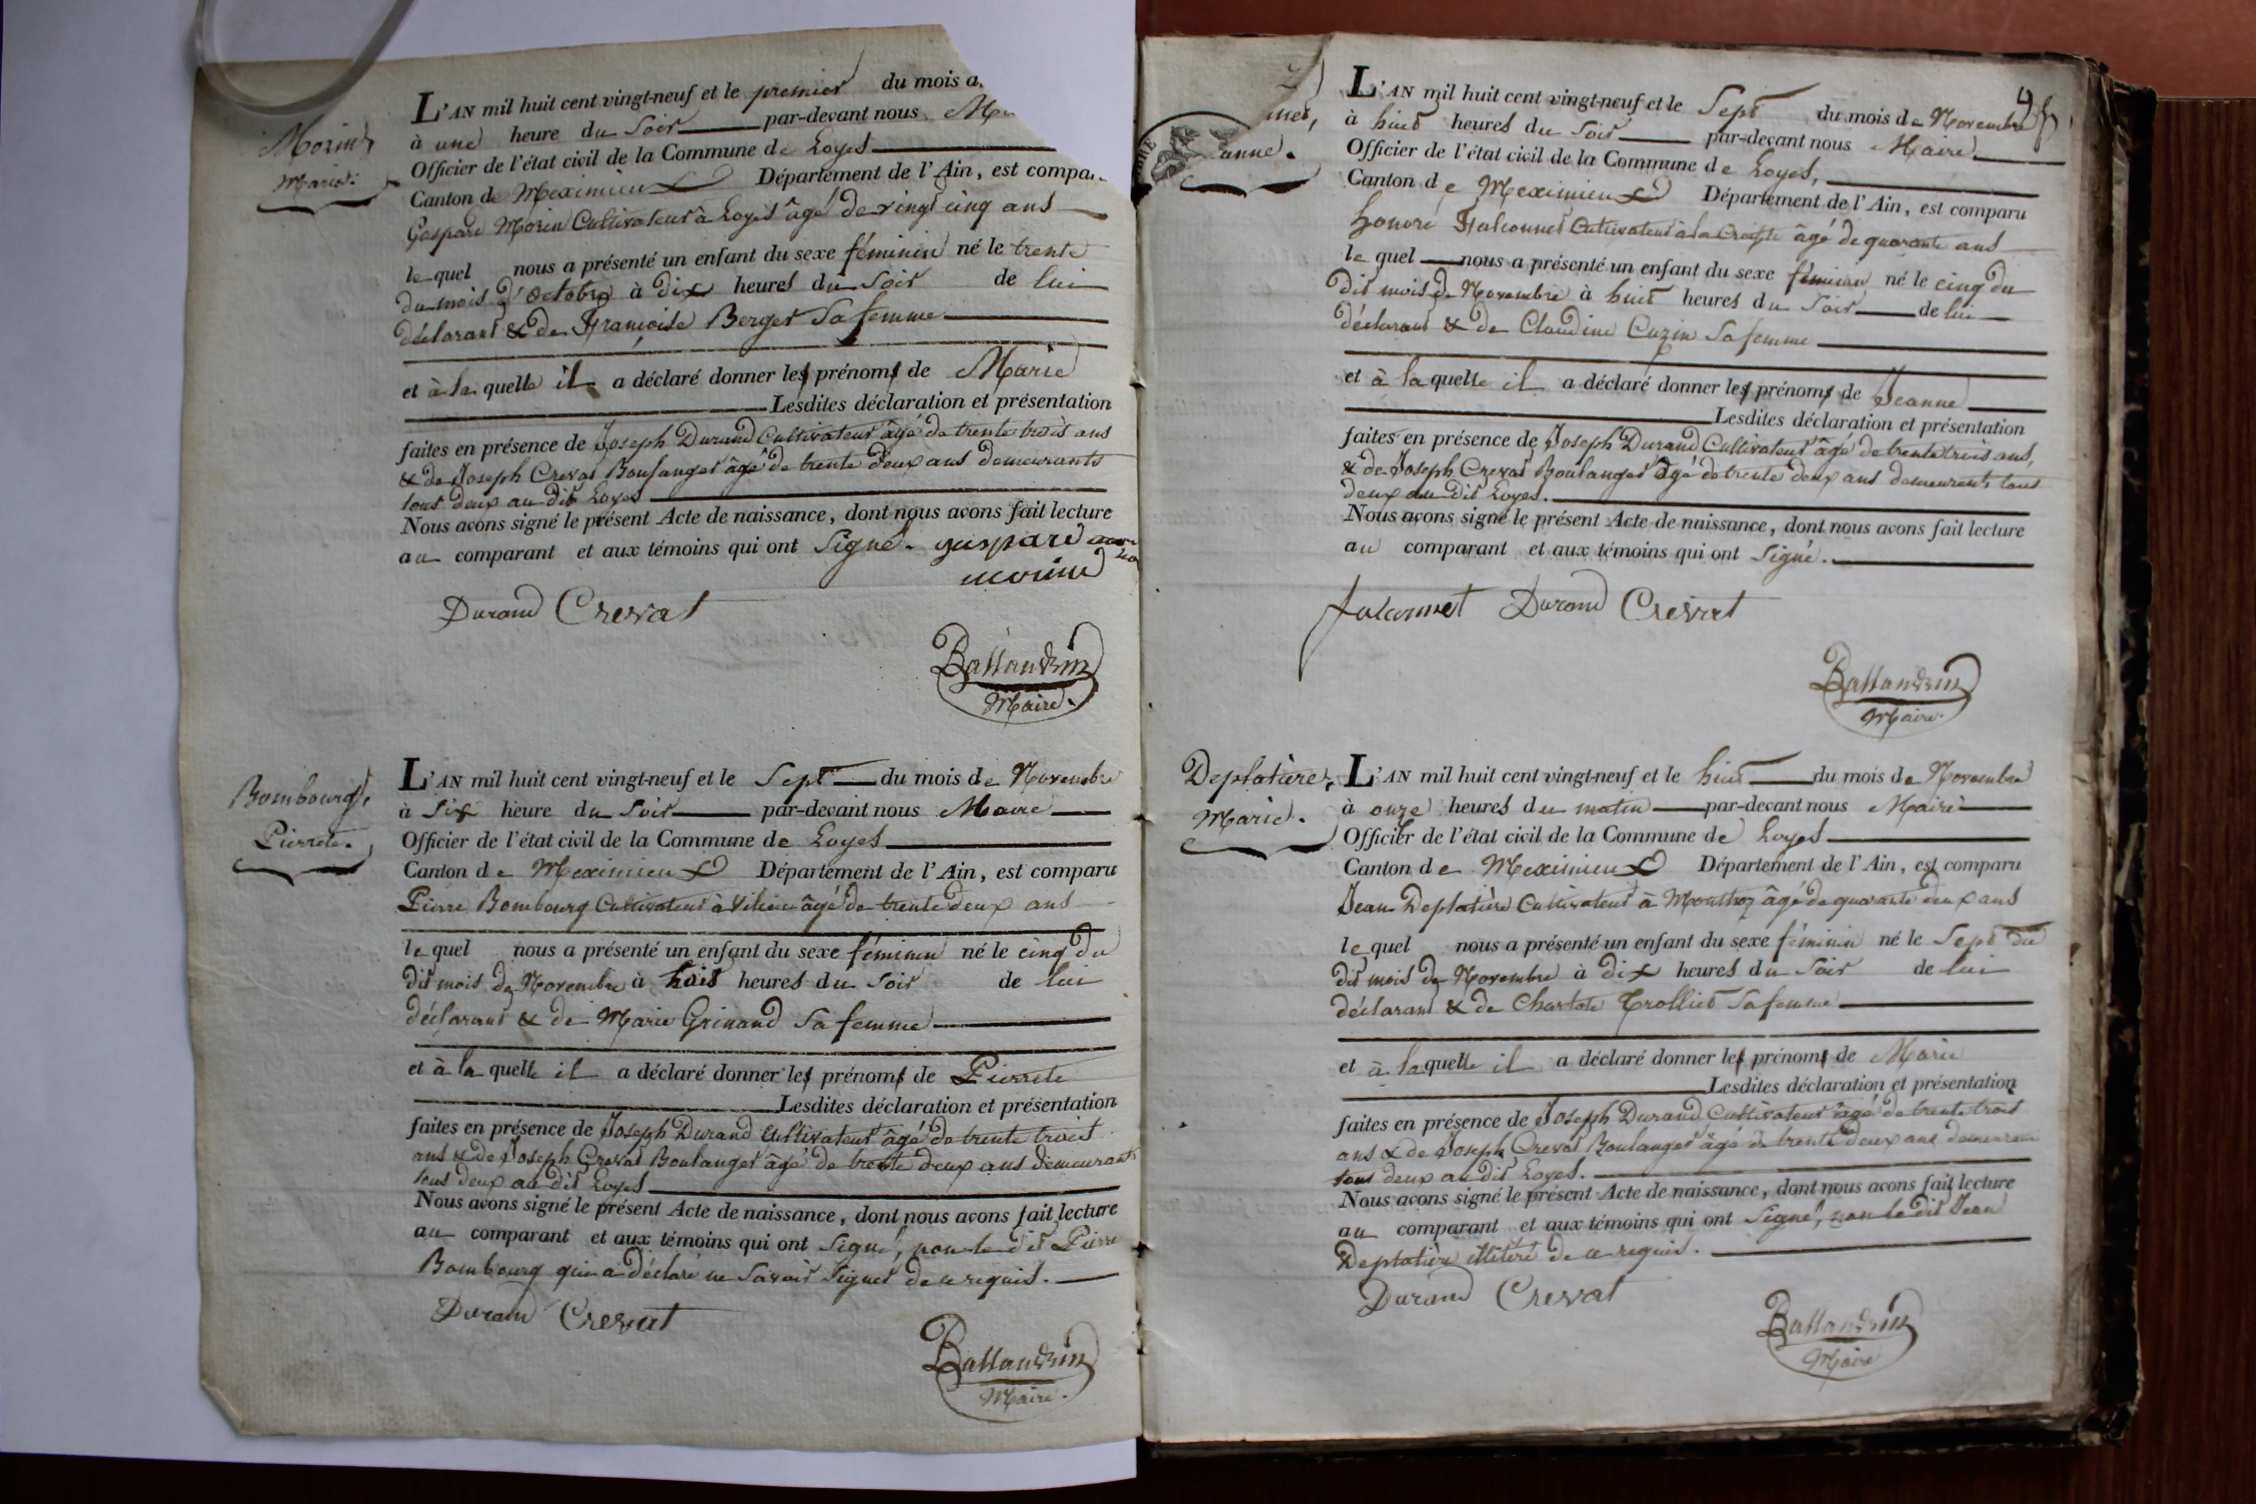 Morin,
Marie.
L'AN mil huit cent vingt-neuf et le premier du mois
à une heure du soir par-devant nous
Officier de l'état civil de la Commune de Loyes
Canton de Meximieux Département de l'Ain, est compar
Gaspard Morin Cultivateur à Loyes âgé de vingt cinq ans
le quel nous a présenté un enfant du sexe féminin né le trente
du mois d'octobre à dix heures du soir de lui
déclarant & de Françoise Berger sa femme
et à la quelle il a déclaré donner les prénoms de Marie
Lesdites déclaration et présentation
faites en présence de Joseph Durand Cultivateur âgé de trente trois ans
& de Joseph Crevat Boulanger âgé de trente deux ans demeurants
tous deux au dit Loyes
Nous avons signé le présent Acte de naissance, dont nous avons fait lecture
au comparant et aux témoins qui ont signé. gaspard
morin
Durand Crevat
Ballandrin
Maire.
Bombourg,
Pierrete.
L'AN mil huit cent vingt-neuf et le Sept du mois de Novembre
à six heure du soir par-devant nous Maire
Officier de l'état civil de la Commune de Loyes
Canton de Meximieux Département de l'Ain, est comparu
Pierre Bombourg Cultivateur à âgé de trente deux ans
le quel nous a présenté un enfant du sexe féminin né le cinq du
dit mois de Novembre à heures du soir de lui
déclarant & de Marie Grinand sa femme
et à la quelle il a déclaré donner les prénoms de Pierrete
Lesdites déclaration et présentation
faites en présence de Joseph Durand Cultivateur âgé de trente trois
ans & de Joseph Crevat Boulanger âgé de trente deux ans demeurants
tous deux au dit Loyes
Nous avons signé le présent Acte de naissance, dont nous avons fait lecture
au comparant et aux témoins qui ont signé, non le dit Pierre
Bombourg qui a déclaré ne savoir signer de ce requis.
Durand Crevat
Ballandrin
Maire.
anne.
L'AN mil huit cent vingt-neuf et le Sept du mois de Novembre
à huit heures du soir par-devant nous Maire
Officier de l'état civil de la Commune de Loyes,
Canton de Meximieux Département de l'Ain, est comparu
honoré Falconnet Cultivateur à la âgé de quarante ans
le quel nous a présenté un enfant du sexe féminin né le cinq du
dit mois de Novembre à huit heures du soir de lui
déclarant & de Claudine Cuzin sa femme
et à la quelle il a déclaré donner les prénoms de Jeanne
Lesdites déclaration et présentation
faites en présence de Joseph Durand Cultivateur âgé de trente trois ans,
& de Joseph Crevat Boulanger âgé de trente deux ans demeurants tous
deux au dit Loyes.
Nous avons signé le présent Acte de naissance, dont nous avons fait lecture
au comparant et aux témoins qui ont signé.
falconnet Durand Crevat
Ballandrin
Maire.
Deplatière,
Marie.
L'AN mil huit cent vingt-neuf et le huit du mois de Novembre
à onze heures du matin par-devant nous Maire
Officier de l'état civil de la Commune de Loyes
Canton de Meximieux Département de l'Ain, est comparu
Jean Deplatière Cultivateur à Monthoz âgé de quarante deux ans
le quel nous a présenté un enfant du sexe féminin né le Sept du
dit mois de Novembre à dix heures du soir de lui
déclarant & de Charlote Trolliet sa femme
et à la quelle il a déclaré donner les prénoms de Marie
Lesdites déclaration et présentation
faites en présence de Joseph Durand Cultivateur âgé de trente trois
ans & de Joseph Crevat Boulanger âgé de trente deux ans
tous deux au dit Loyes.
Nous avons signé le présent Acte de naissance, dont nous avons fait lecture
au comparant et aux témoins qui ont signé, non le dit Jean
Deplatière de ce requis.
Durand Crevat
Ballandrin
Maire